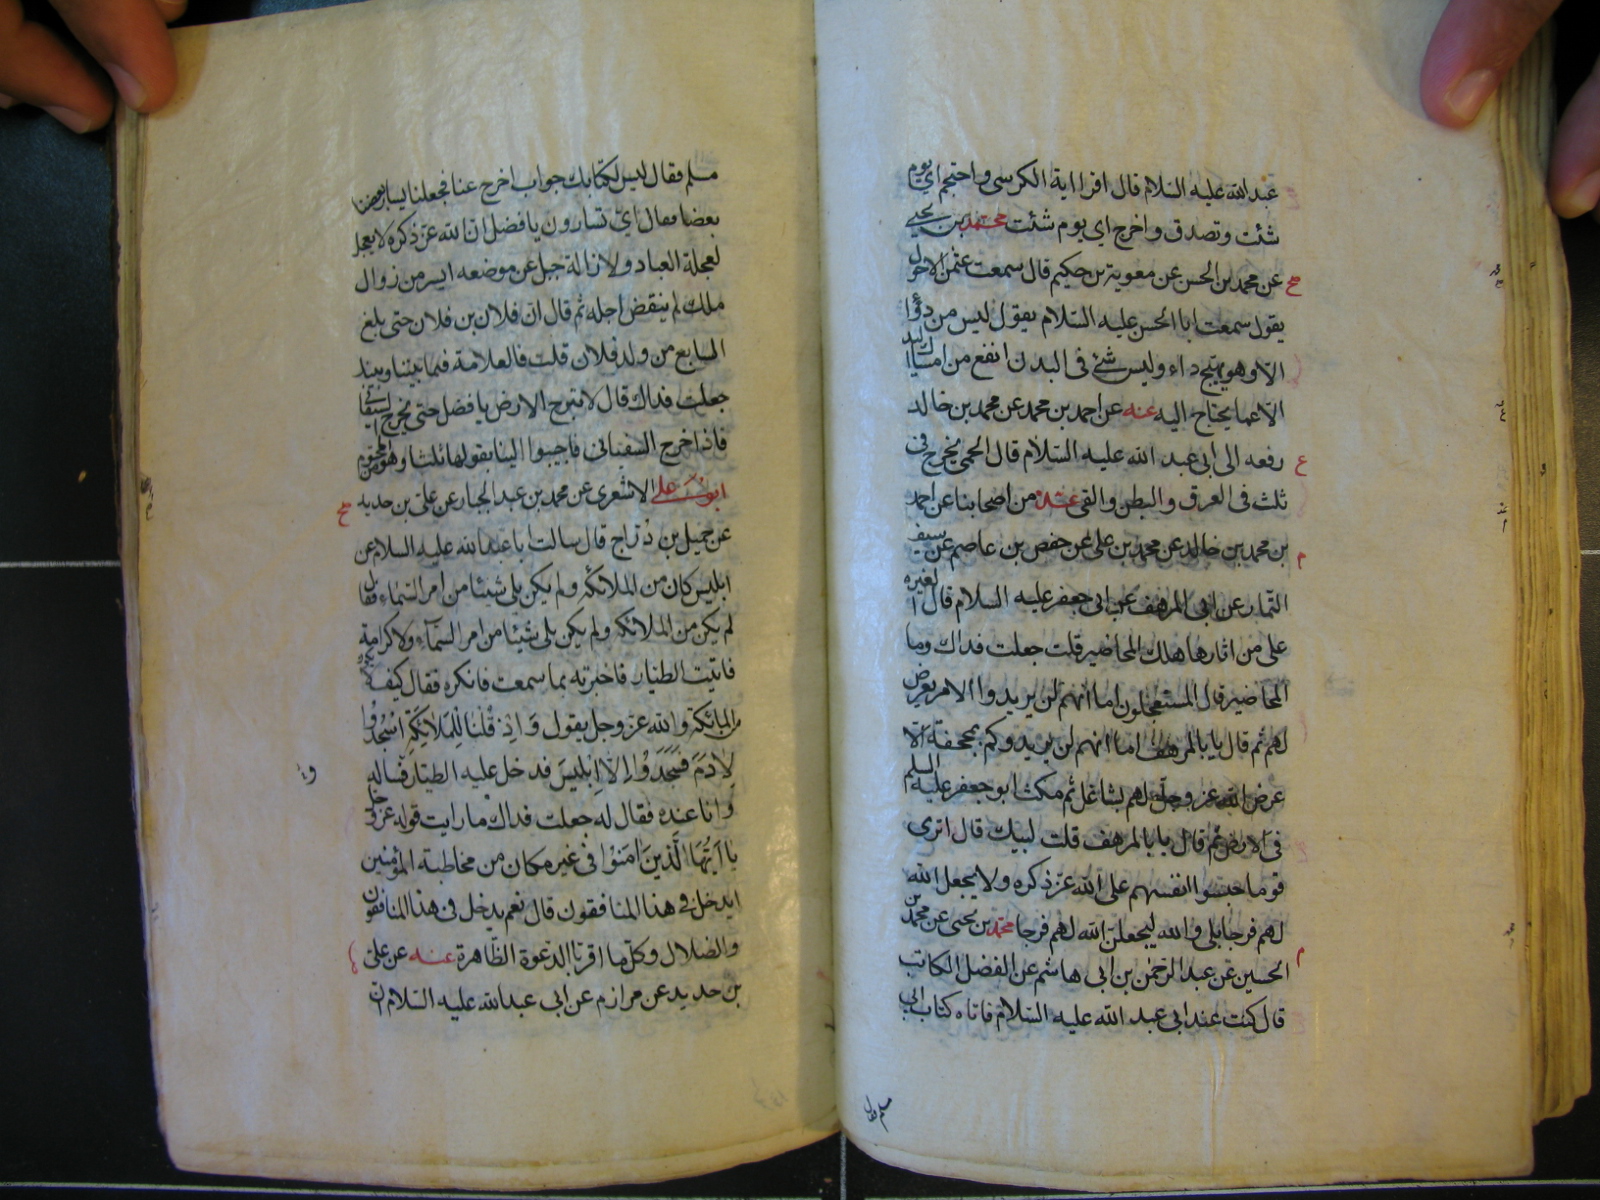 عبد الله عليه السلام قال اقرا اية الكرسى واحتجم اى يوم
شئت وتصدق واخرج اى يوم شئت محمد بن يحيى
عن محمد بن الحسن عن معوية بن حكيم قال سمعت عثمن الاحول
يقول سمعت ابا الحسن عليه السلام يقول ليس من دوآ
الا وهو يهيج داء وليس شئ فى البدن انفع من امساك اليد
الا عما يحتاج اليه عنه عن احمد بن محمد عن محمد بن خالد
رفعه الى ابى عبد الله عليه السلام قال الحمى يخرج فى
ثلث فى العرق والبطن والقى عدة من اصحابنا عن احمد
بن محمد بن خالد عن محمد بن على عن حفص بن عاصم عن سيف
التمار عن ابى المرهف عن ابى جعفر عليه السلام قال الغبرة
على من اثارها هلك المحاضير قلت جعلت فداك وما
المحاضير قال المستعجلون اما انهم لن يريدوا الا من يعرض
لهم ثم قال يا با المرهف اما انهم لن يريدوكم بمجحفة الا
عرض الله عز وجل لهم بشاغل ثم نكث ابو جعفر عليه السلم
فى الارض ثم قال يا با المرهف قلت لبيك قال اترى
قوما حبسوا انفسهم على الله عز ذكره ولا يجعل الله
لهم فرجا بلى والله ليجعلن الله لهم فرجا محمد بن يحيى عن محمد بن
الحسين عن عبد الرحمن بن ابى هاشم عن الفضل الكاتب
قال كنت عند ابى عبد الله عليه السلام فاتاه كتاب ابى
مسلم فقال
مسلم فقال ليس لكتابك جواب اخرج عنا فجعلنا يسار بعضنا
بعضا فقال اى تسارون يا فضل ان الله عز ذكره لا يعجل
لعجلة العباد ولازالة جبل عن موضعه ايسر من زوال
ملك لم ينقض اجله ثم قال ان فلان بن فلان حتى بلغ
السابع من ولد فلان قلت فالعلامة فيما بيننا وبينك
جعلت فداك قال لا تبرح الارض يا فضل حتى يخرج السفيانى
فاذا خرج السفيانى فاجيبوا الينا يقولها ثلثا وهو من المحتوم
ابو على الاشعرى عن محمد بن عبد الجبار عن على بن حديد
عن جميل بن دراج قال سالت ابا عبد الله عليه السلام عن
ابليس كان من الملائكة ولم يكن يلى شيئا من امر السماء فقال
لم يكن من الملائكة ولم يكن يلى شيئا من امر السمآء ولا كرامة
فاتيت الطيار فاخبرته بما سمعت فانكره فقال كيف لا
من الملائكة والله عز وجل يقول وَاِذ قُلنَا لِلمَلآئِكَةِ اسْجُدُوا
لاِدَمَ فَسَجَدُوا اِلاَّ اِبْلِيسَ فدخل عليه الطيار فساله
وانا عنده فقال له جعلت فداك ما رايت قوله عز وجل
يَا اَيُّهَا الَّذِينَ امَنُوْا فى غير مكان من مخاطبة المؤمنين
ايدخل فى هذا المنافقون قال نعم يدخل فى هذا المنافقون
والضلال وكل ما اقر بالدعوة الظاهرة عنه عن على
بن حديد عن مرازم عن ابى عبد الله عليه السلام ان